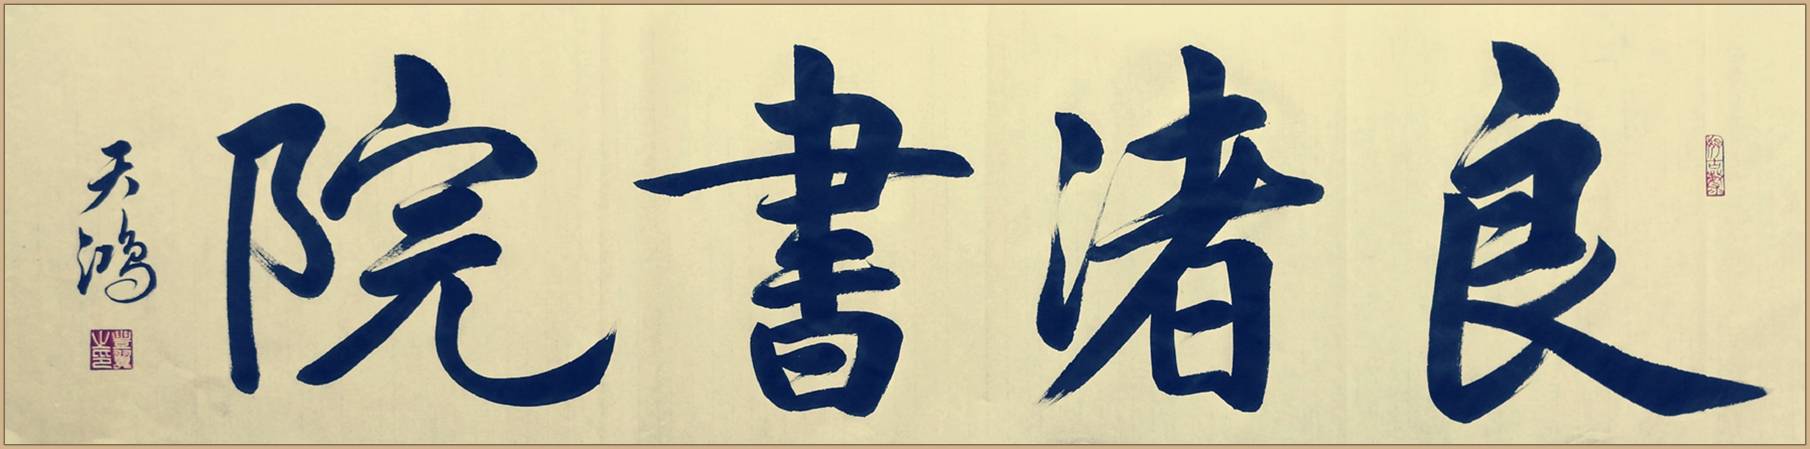 良渚書院
天鴻